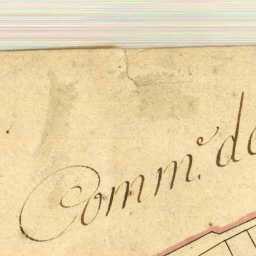 Comm.e de